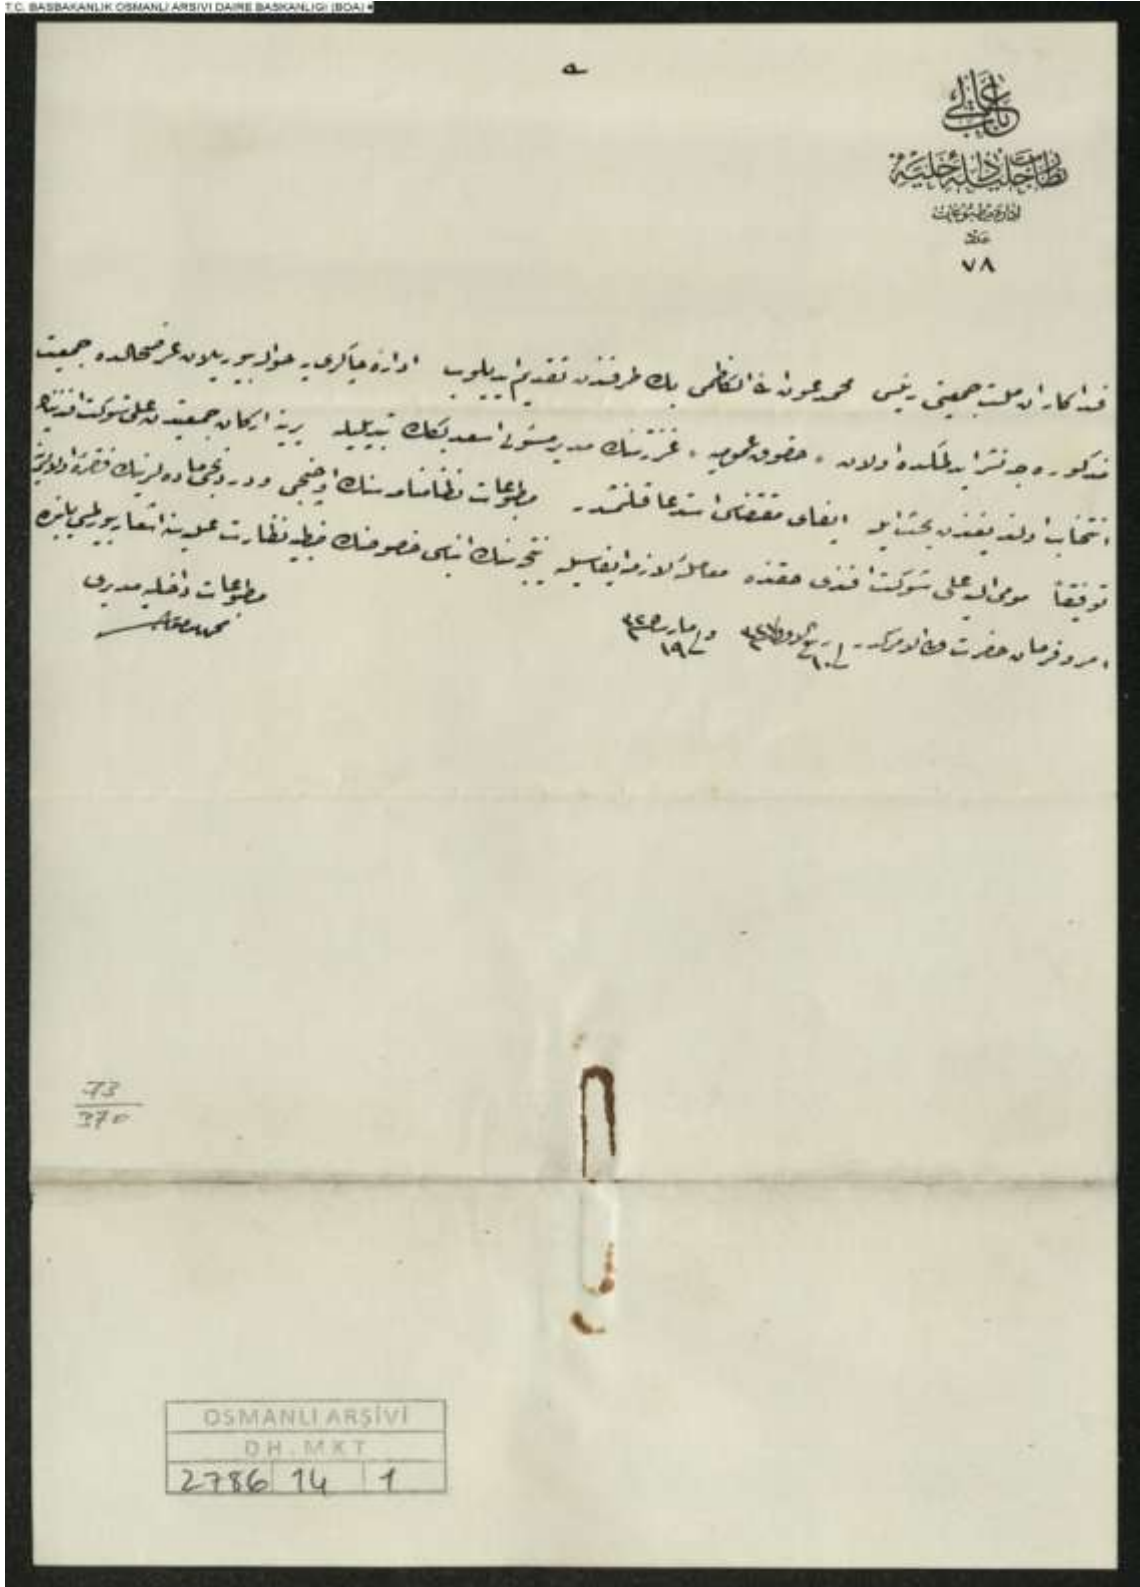 T.C. BAŞBAKANLIK OSMANLI ARŞİVİ DAİRE BAŞKANLIĞI (BOA)
باب عالی
نظارت جلیلۀ داخلیه
ادارۀ مطبوعات
عدد
٧٨
فداکاران ملت جمعیتی رئیسی محمد عونی الکاظمی بك طرفندن تقدیم ایدیلوب ادارۀ چاکری یه حواله بیوریلان عرضحالده جمعیت
مذکوره جه نشر ایدلمکده اولان حقوق عمومیه غزته سنك مدیر مسئولی اسعد بكك تبدیلیله یرینه ارکان جمعیتدن علی شوکت افندینك
انتخاب اولندیغندن بحث ایله ایفای مقتضاسی استدعا قلنمشدر مطبوعات نظامنامه سنك اوچنجی و دردنجی ماده لرینك فقرۀ اولالرینه
توفیقا مومی الیه علی شوکت افندی حقنده معاملۀ لازمه ایفاسیله نتیجه سنك انباسی خصوصنك ضبطیه نظارت علیه سنه اشعار بیورلمسی بابنده
امر و فرمان حضرت من له الامرکدر فی ١٠ ربیع الاول ٣٢٧ و فی ١٩ مارت ٣٢٥
مطبوعات داخلیه مدیری
73
370
OSMANLI ARŞİVİ
DH.MKT
2786 14 1